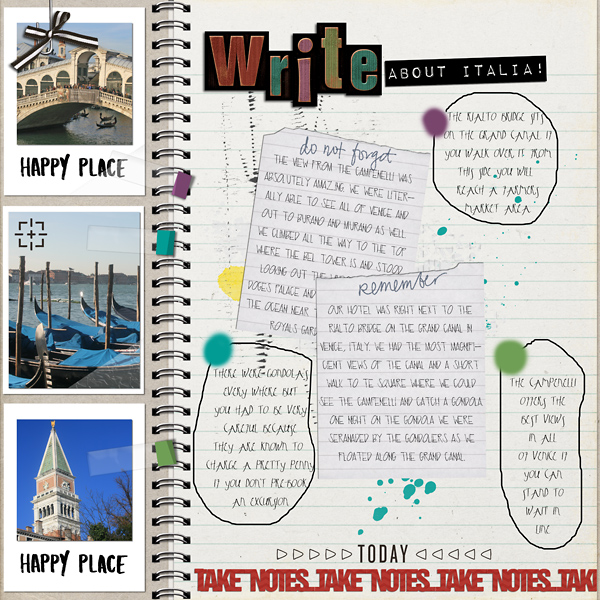 Write
ABOUT ITALIA!
HAPPY PLACE
THE RIALTO BRIDGE SITS
ON THE GRAND CANAL. IF
YOU WALK OVER IT FROM
THIS SIDE YOU WILL
REACH A FARMERS
MARKET AREA
do not forget
THE VIEW FROM THE CAMPENELLI WAS
ABSOLUTELY AMAZING. WE WERE LITER-
ALLY ABLE TO SEE ALL OF VENICE AND
OUT TO BURANO AND MURANO AS WELL.
WE CLIMBED ALL THE WAY TO THE TOP
WHERE THE BEL TOWER IS AND STOOD
LOOKING OUT THE
DOGES PALACE AND
THE OCEAN NEAR
ROYALS
remember
OUR HOTEL WAS RIGHT NEXT TO THE
RIALTO BRIDGE ON THE GRAND CANAL IN
VENICE, ITALY. WE HAD THE MOST MAGNIFI-
CENT VIEWS OF THE CANAL AND A SHORT
WALK TO TE SQUARE WHERE WE COULD
SEE THE CAMPENELLI AND CATCH A GONDOLA.
ONE NIGHT ON THE GONDOLA WE WERE
SERANADED BY THE GONDOLIERS AS WE
FLOATED ALONG THE GRAND CANAL.
THERE WERE GONDOLAS
EVERY WHERE BUT
YOU HAD TO BE VERY
CAREFUL BECAUSE
THEY ARE KNOWN TO
CHARGE A PRETTY PENNY
IF YOU DON'T PRE-BOOK
AN EXCURSION
THE CAMPENELLI
OFFERS THE
BEST VIEWS
IN ALL
OF VENICE IF
YOU CAN
STAND TO
WAIT IN
LINE
HAPPY PLACE
TODAY
TAKE NOTES...TAKE NOTES...TAKE NOTES...TAK